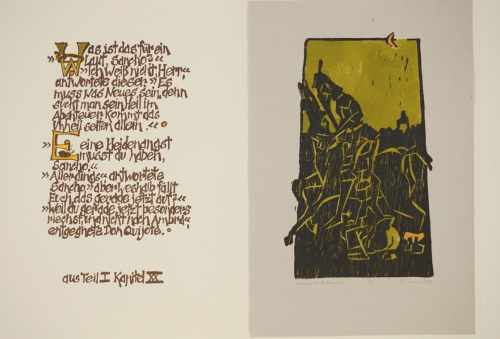 Was ist das für ein
Laut, Sancho?“
„Ich weiß nicht, Herr“,
antwortete dieser. „Es
muss was Neues sein, denn
sucht man sein Heil im
Abenteuer, kommt das
Unheil selten allein.“
Eine Heidenangst
musst du haben,
Sancho.“
„Allerdings“ antwortete
Sancho „aber weshalb fällt
Euch das gerade jetzt auf?“
„Weil du gerade jetzt besonders
riechst, und nicht nach Ambra“,
entgegnete Don Quijote.
aus Teil I Kapitel XX